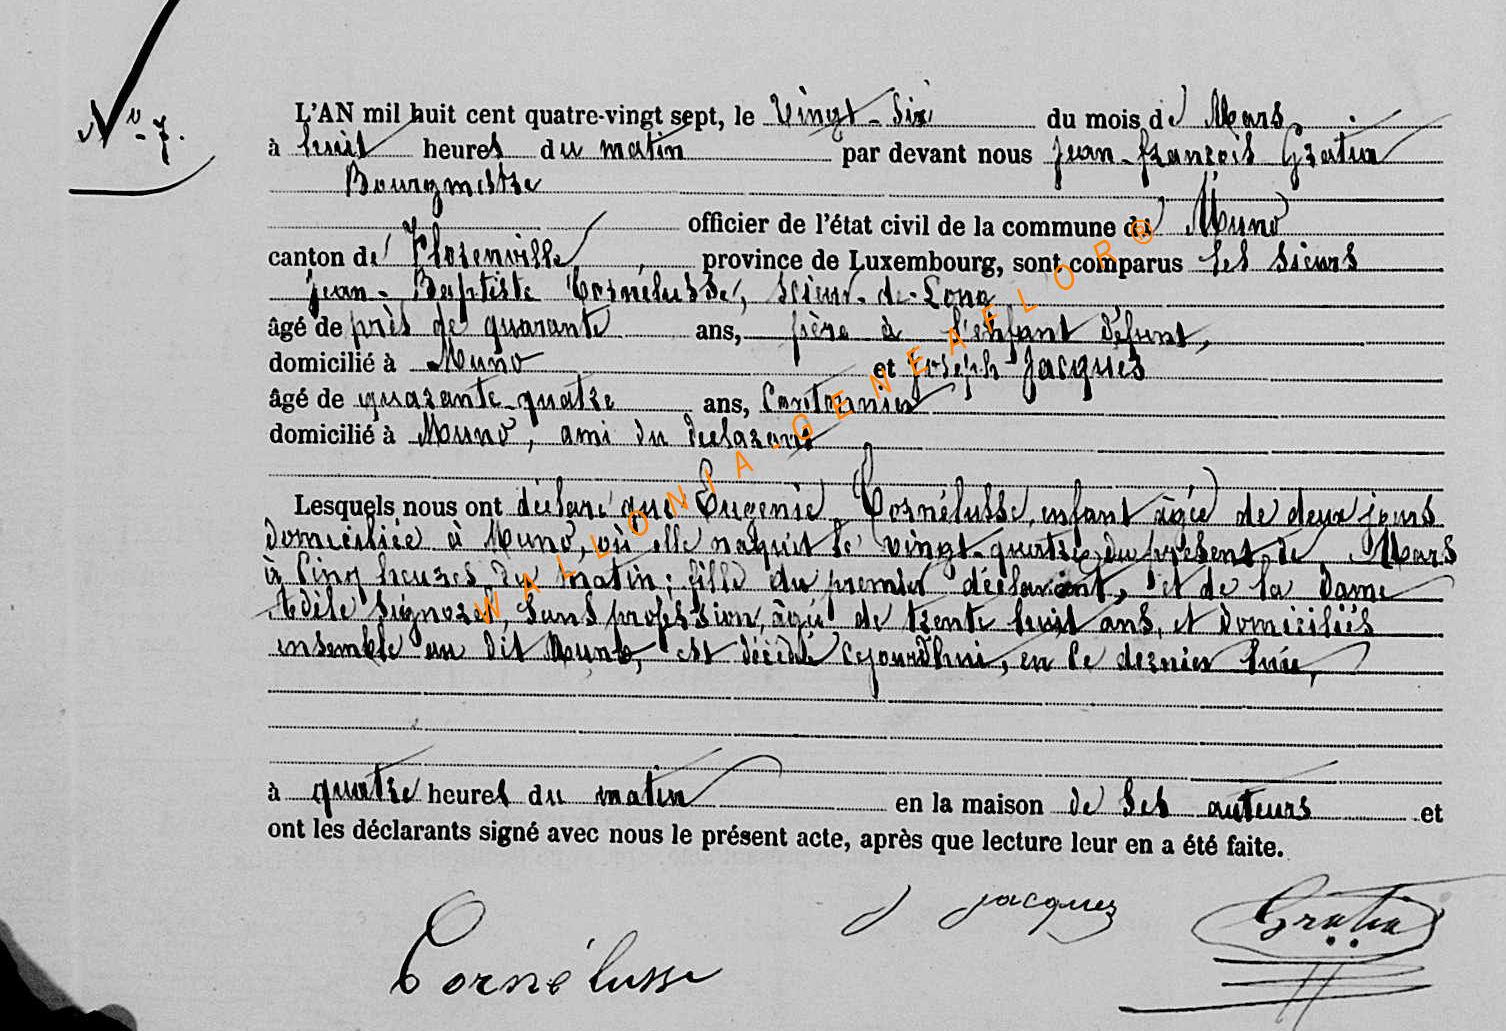 N° 7.
L'AN mil huit cent quatre-vingt sept, le vingt-six du mois de Mars
à huit heures du matin par devant nous Jean-François Gratia
Bourgmestre
officier de l'état civil de la commune de Muno
canton de Florenville province de Luxembourg, sont comparus les sieurs
Jean-Baptiste Cornélusse, scieur-de-Long
âgé de près de quarante ans, père à l'enfant défunt,
domicilié à Muno et Joseph Jacques
âgé de quarante-quatre ans, Cantonnier
domicilié à Muno, ami du déclarant
Lesquels nous ont déclaré que Eugenie Cornélusse, enfant âgée de deux jours
domiciliée à Muno, où elle naquit le vingt-quatre du présent de Mars
à Cinq heures du matin; fille du premier déclarant, et de la Dame
Adèle Signorel, sans profession, âgée de trente huit ans, et domiciliés
ensemble au dit Muno, est décédé cejourd'hui, en ce dernier lieu,
à quatre heures du matin en la maison de ses auteurs et
ont les déclarants signé avec nous le présent acte, après que lecture leur en a été faite.
J Jacques
Gratia
Cornélusse
WALLONIA-GENEAFLOR®